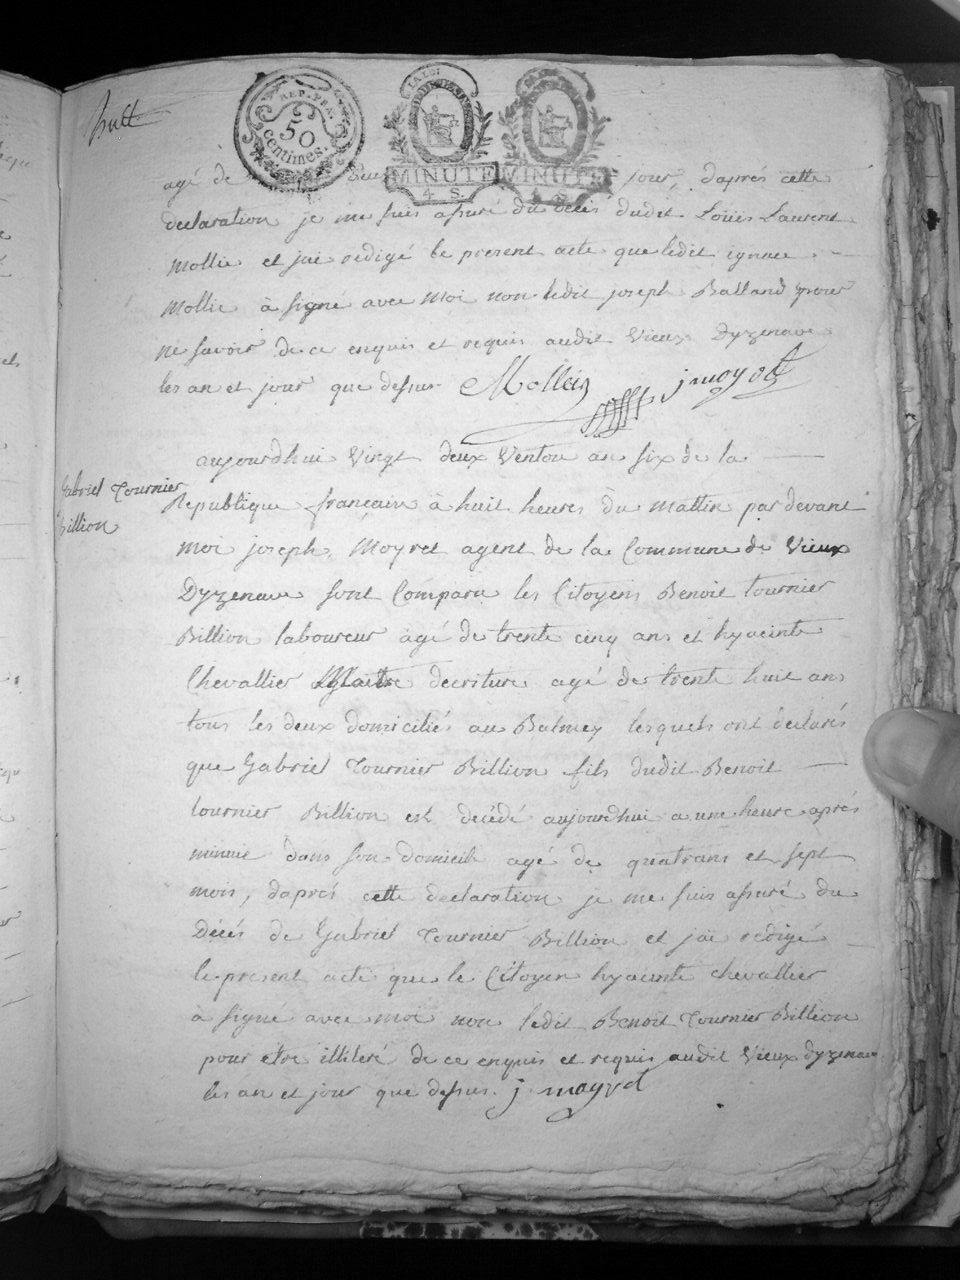 huit
REP. FRA.
50
centimes.
LA LOI
MINUTE
4 S.
MINUTE
4 S.
agé de deux jour, daprès cette
declaration je me suis assuré du décès dudit Loüis Laurent
Mollie et jai rédigé le present acte que ledit ignace
Mollie à signé avec moi non ledit joseph Balland pour
ne savoir de ce enquis et requis audit Vieux Dyzenave
les an et jour que dessus. Mollie j moyret
Gabriel Tournier
Billion
aujourdhui Vingt deux Ventou an six de la
Republique françaire à huit heures du mattin par devant
moi joseph Moyret agent de la Commune de Vieux
Dyzenave sont Comparu les Citoyens Benoit tournier
Billion laboureur agé de trente cinq ans et hyacinte
Chevallier Maitre decriture agé de trente huit ans
tous les deux domiciliés au Balmey lesquels ont déclarés
que Gabriel Tournier Billion fils dudit Benoit
tournier Billion est décédé aujourdhui a une heure après
minuit dans son domicile agé de quatrans et sept
mois, daprés cette declaration je me suis assuré du
Décés de Gabriel Tournier Billion et jai rédigé
le present acte que le Citoyen hyacinte chevallier
à signé avec moi non ledit Benoit Tournier Billion
pour être illiteré de ce enquis et requis audit Vieux dyzenave
les an et jour que dessus. j. moyret